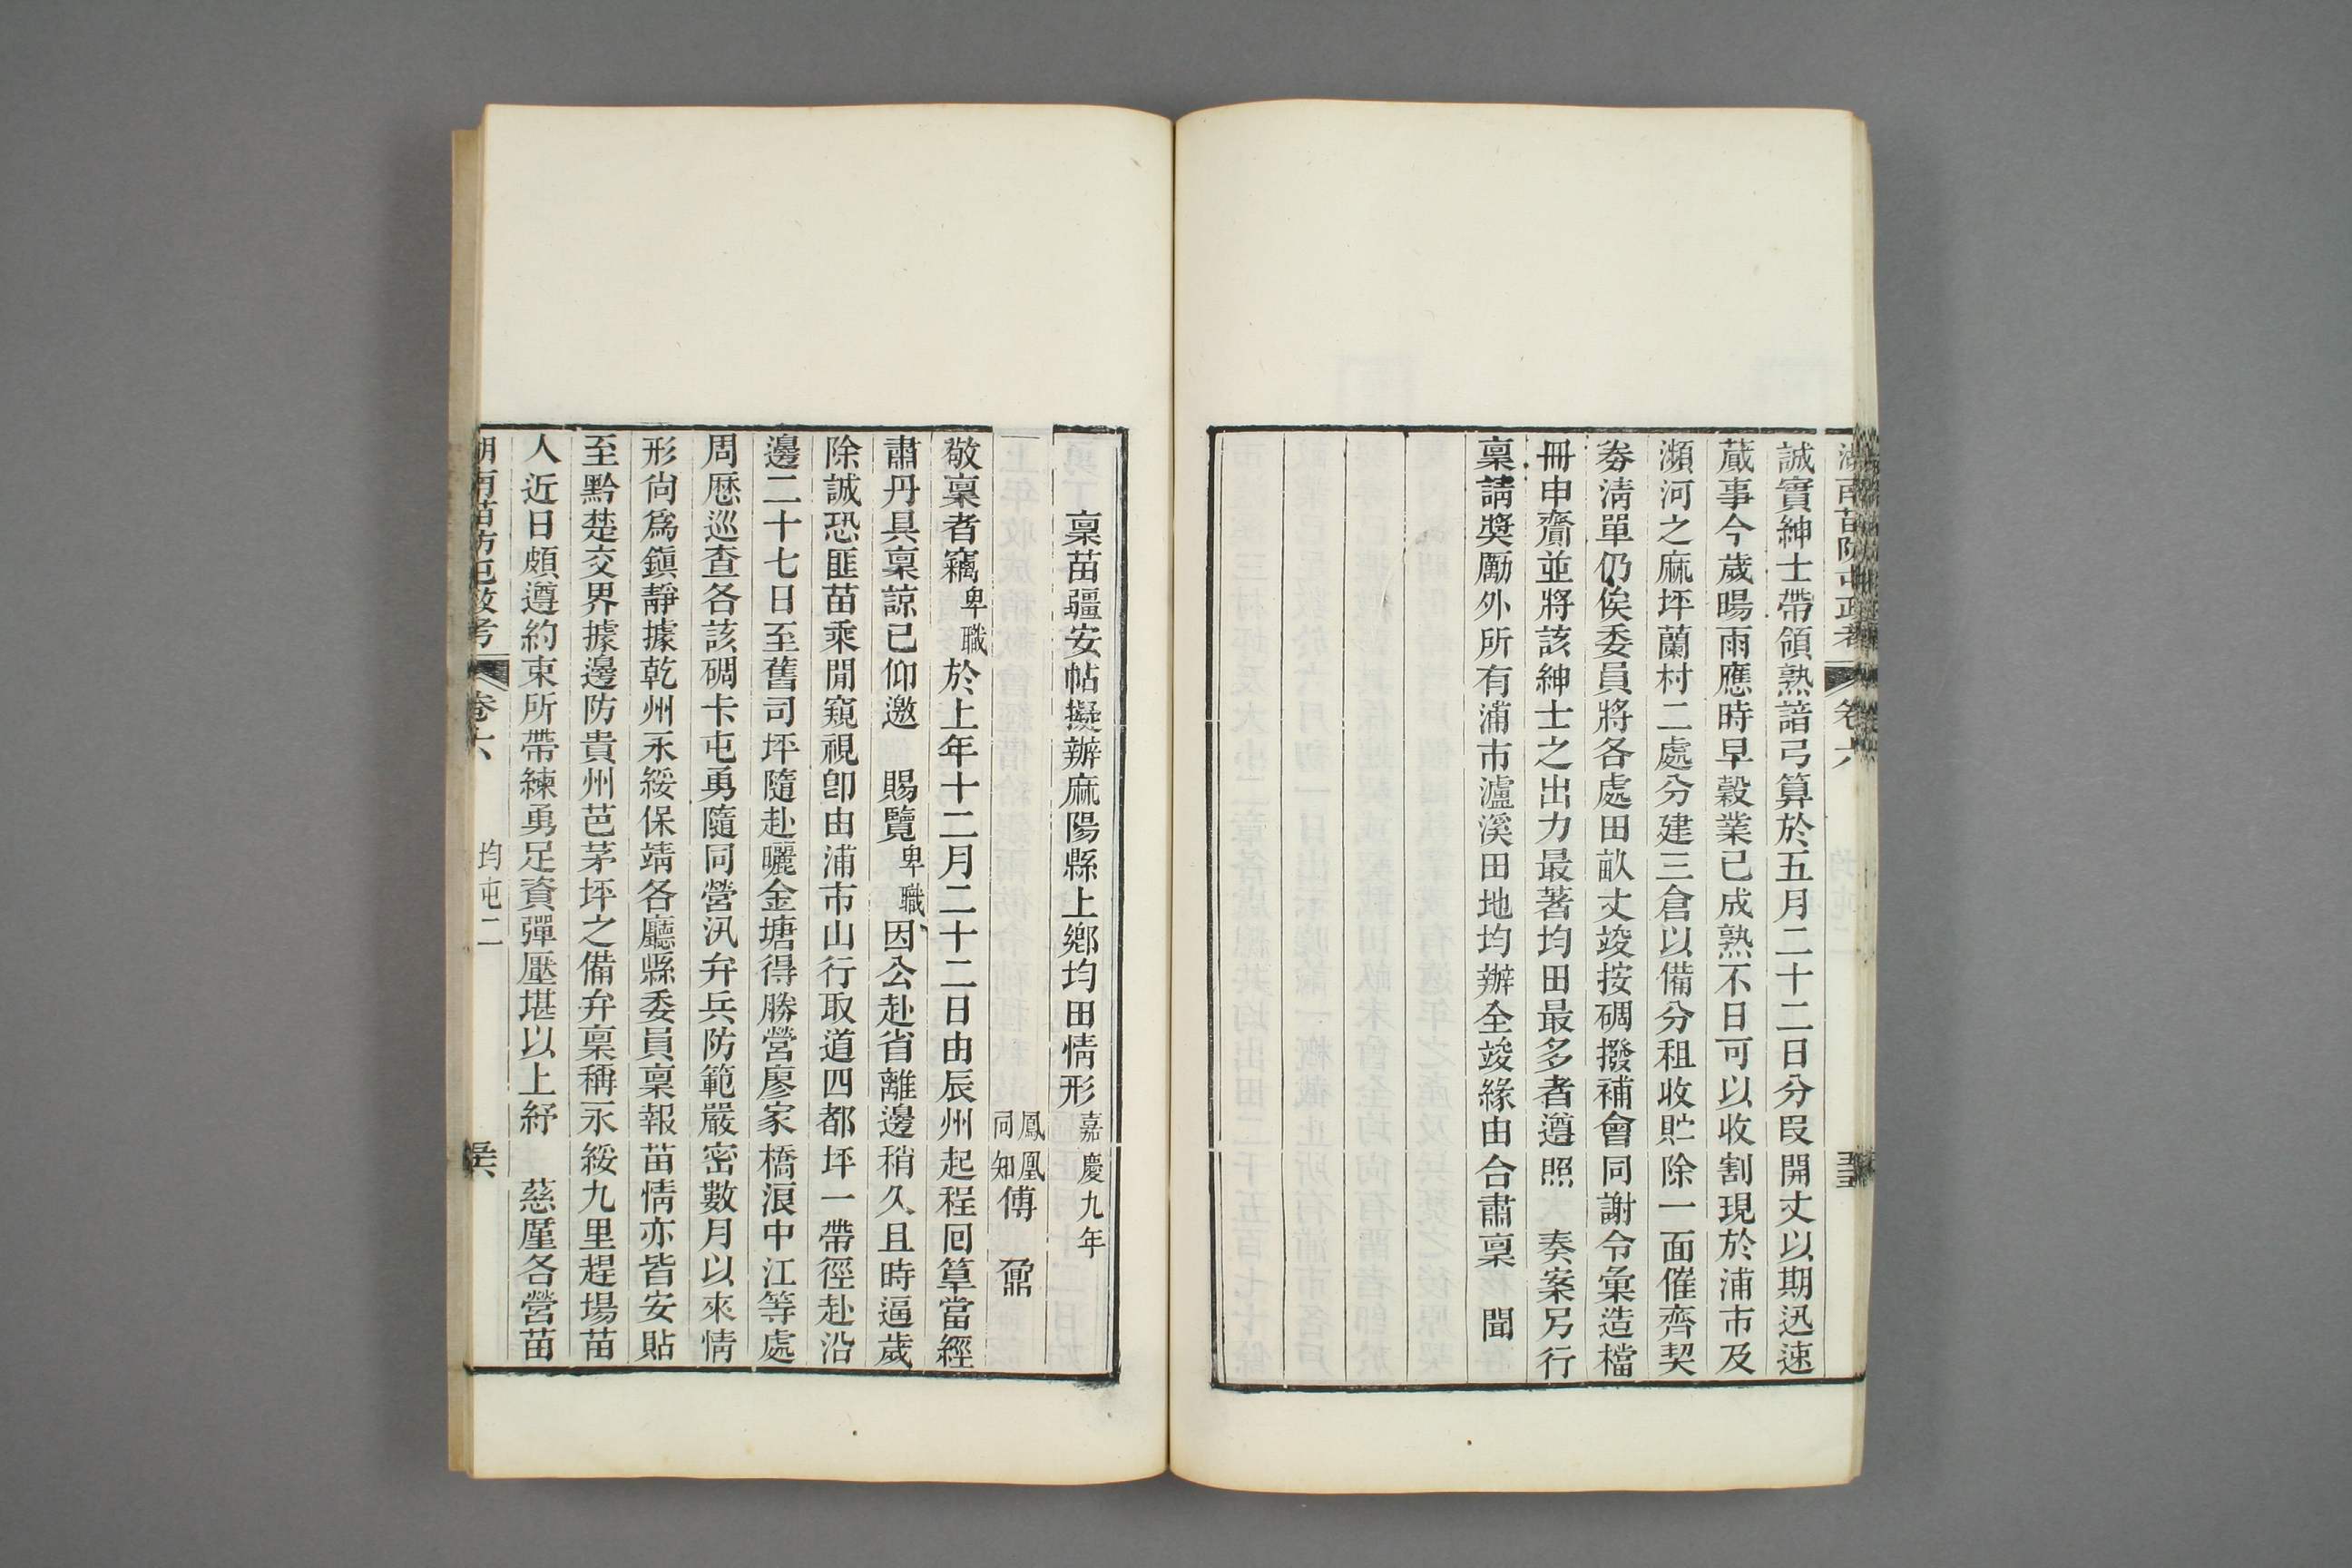 湖南苗防屯政考 卷六
誠實紳士帶領熟諳弓算於五月二十二日分叚開丈以期迅速
蕆事今歲暘雨應時早穀業已成熟不日可以收割現於浦市及
瀕河之麻坪蘭村二處分建三倉以備分租收貯除一面催齊契
劵清單仍俟委員將各處田畝丈竣按碉撥補會同謝令彙造檔
冊申賷並將該紳士之出力最著均田最多者遵照 奏案另行
稟請獎勵外所有浦市瀘溪田地均辦全竣緣由合肅稟 聞
稟苗疆安帖擬辦麻陽縣上鄉均田情形 嘉慶九年
鳳凰同知傅 鼐
敬稟者竊卑職於上年十二月二十二日由辰州起程囘筸當經
肅丹具稟諒已仰邀 賜覽卑職因公赴省離邊稍久且時逼歲
除誠恐匪苗乘閒窺視卽由浦市山行取道四都坪一帶徑赴沿
邊二十七日至舊司坪隨赴曬金塘得勝營廖家橋浪中江等處
周厯巡查各該碉卡屯勇隨同營汛弁兵防範嚴密數月以來情
形尙爲鎭靜據乾州永綏保靖各廳縣委員稟報苗情亦皆安貼
至黔楚交界據邊防貴州芭茅坪之備弁稟稱永綏九里趕場苗
人近日頗遵約束所帶練勇足資彈壓堪以上紓 慈厪各營苗
湖南苗防屯政考 卷六 均屯二